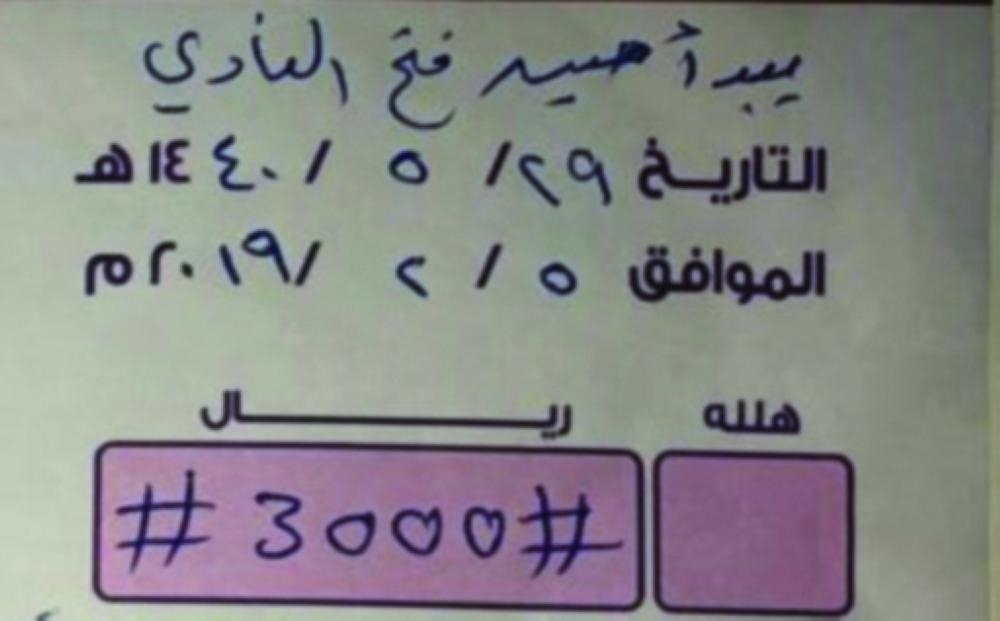 يبدأ حسيه فتح النادي
التاريخ ٢٩ / ٥ / ١٤٤٠ هـ
الموافق ٥ / ٢ / ٢٠١٩ م
هلله ريال
# 3000 #